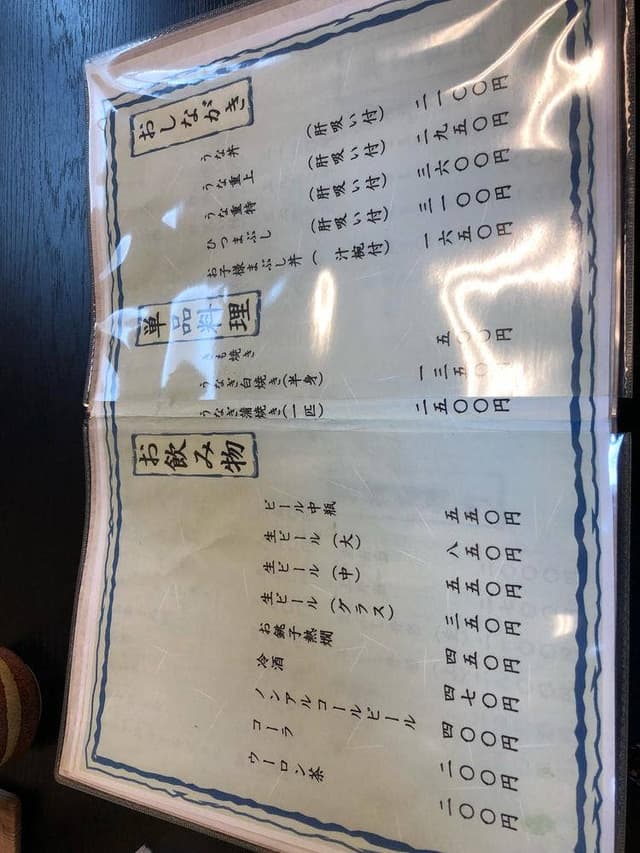 おしながき
うな丼 (肝吸い付) 二一〇〇円
うな重上 (肝吸い付) 二九五〇円
うな重特 (肝吸い付) 三六〇〇円
ひつまぶし (肝吸い付) 三一〇〇円
お子様まぶし丼 (汁椀付) 一六五〇円
単品料理
きも焼き 五〇〇円
うなぎ白焼き(半身) 一三五〇円
うなぎ蒲焼き(一匹) 二五〇〇円
お飲み物
ビール中瓶 五五〇円
生ビール(大) 八五〇円
生ビール(中) 五五〇円
生ビール(グラス) 三五〇円
お銚子熱燗 四五〇円
冷酒 四七〇円
ノンアルコールビール 四〇〇円
コーラ 二〇〇円
ウーロン茶 二〇〇円